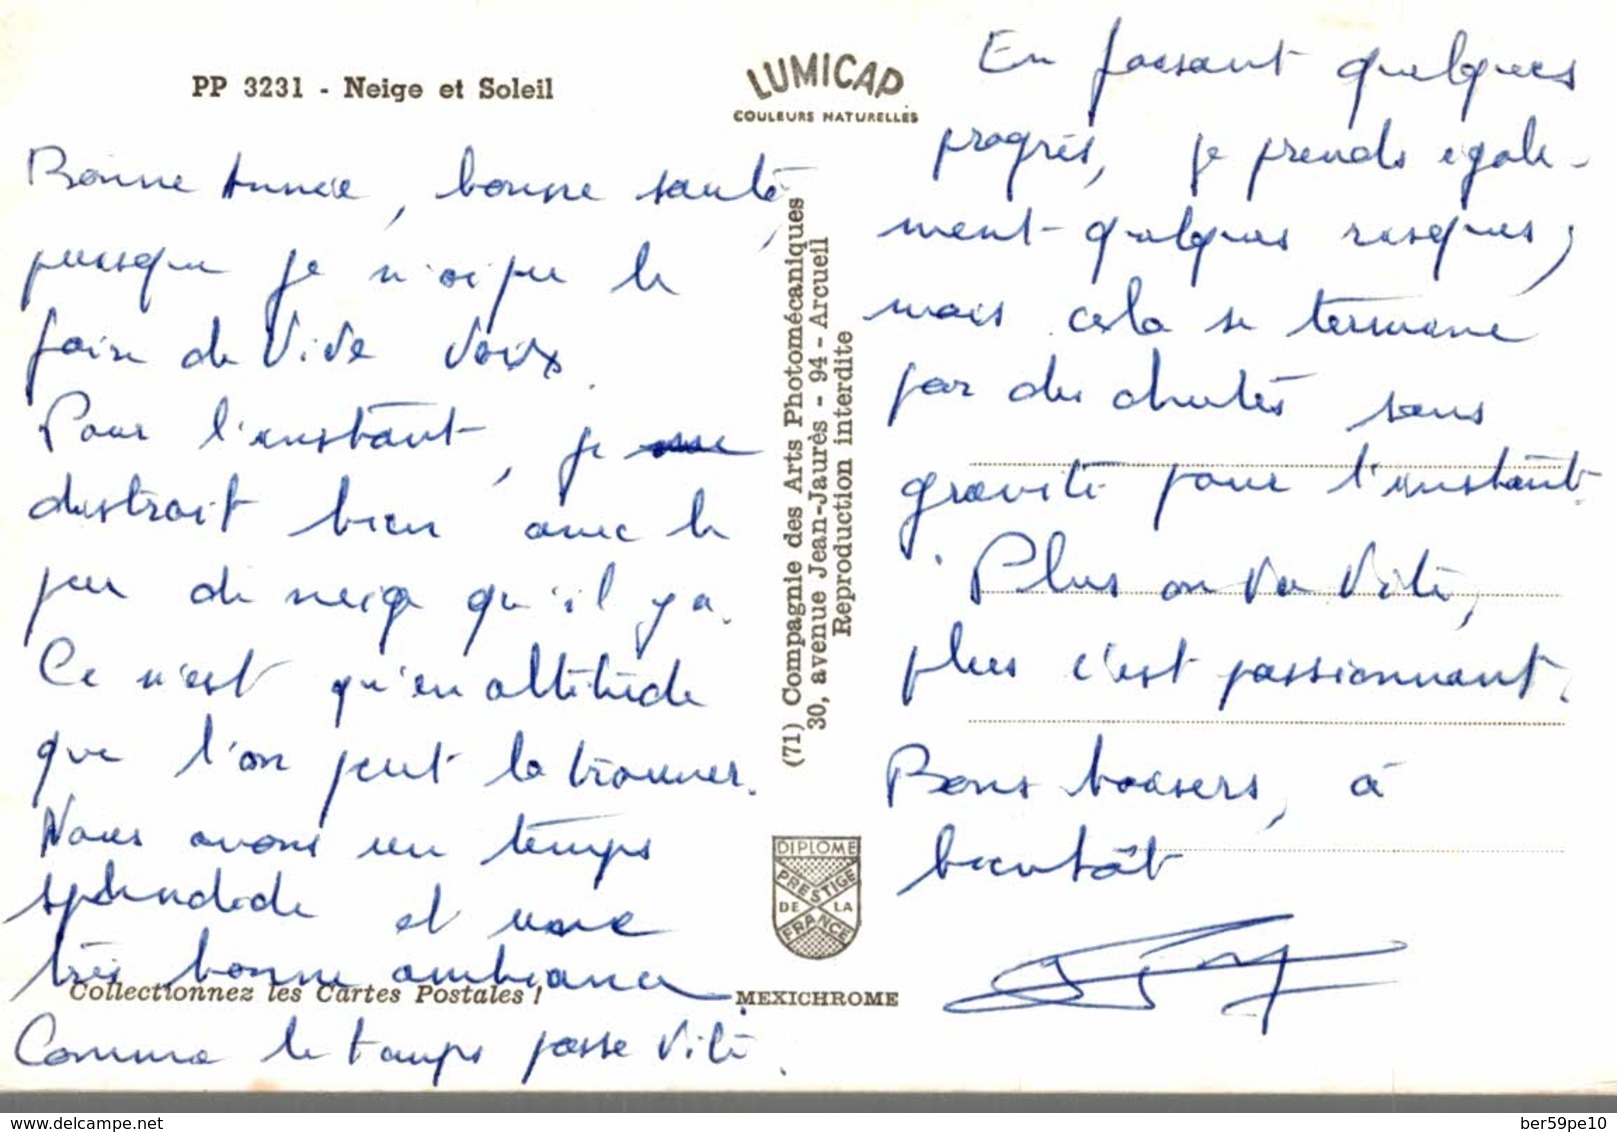 PP 3231 - Neige et Soleil
LUMICAP
COULEURS NATURELLES
Bonne Année, bonne santé,
puisque je n'ai pu le
faire de Vive Voix.
Pour l'instant, je
distrait bien avec le
peu de neige qu'il y a.
Ce n'est qu'en altitude
que l'on peut la trouver.
Nous avons un temps
splendide et une
très bonne ambiance
Collectionnez les Cartes Postales !
Comme le temps passe Vite.
(71) Compagnie des Arts Photomécaniques
30, avenue Jean-Jaurès - 94 - Arcueil
Reproduction interdite
DIPLOME
PRESTIGE
DE LA
FRANCE
MEXICHROME
En faisant quelques
progrés, je prends égale-
ment quelques risques,
mais cela se termine
par des chutes sans
gravité pour l'instant.
Plus on Va Vite,
plus c'est passionnant.
Bons baisers, à
bientôt
delcampe.net
ber59pe10